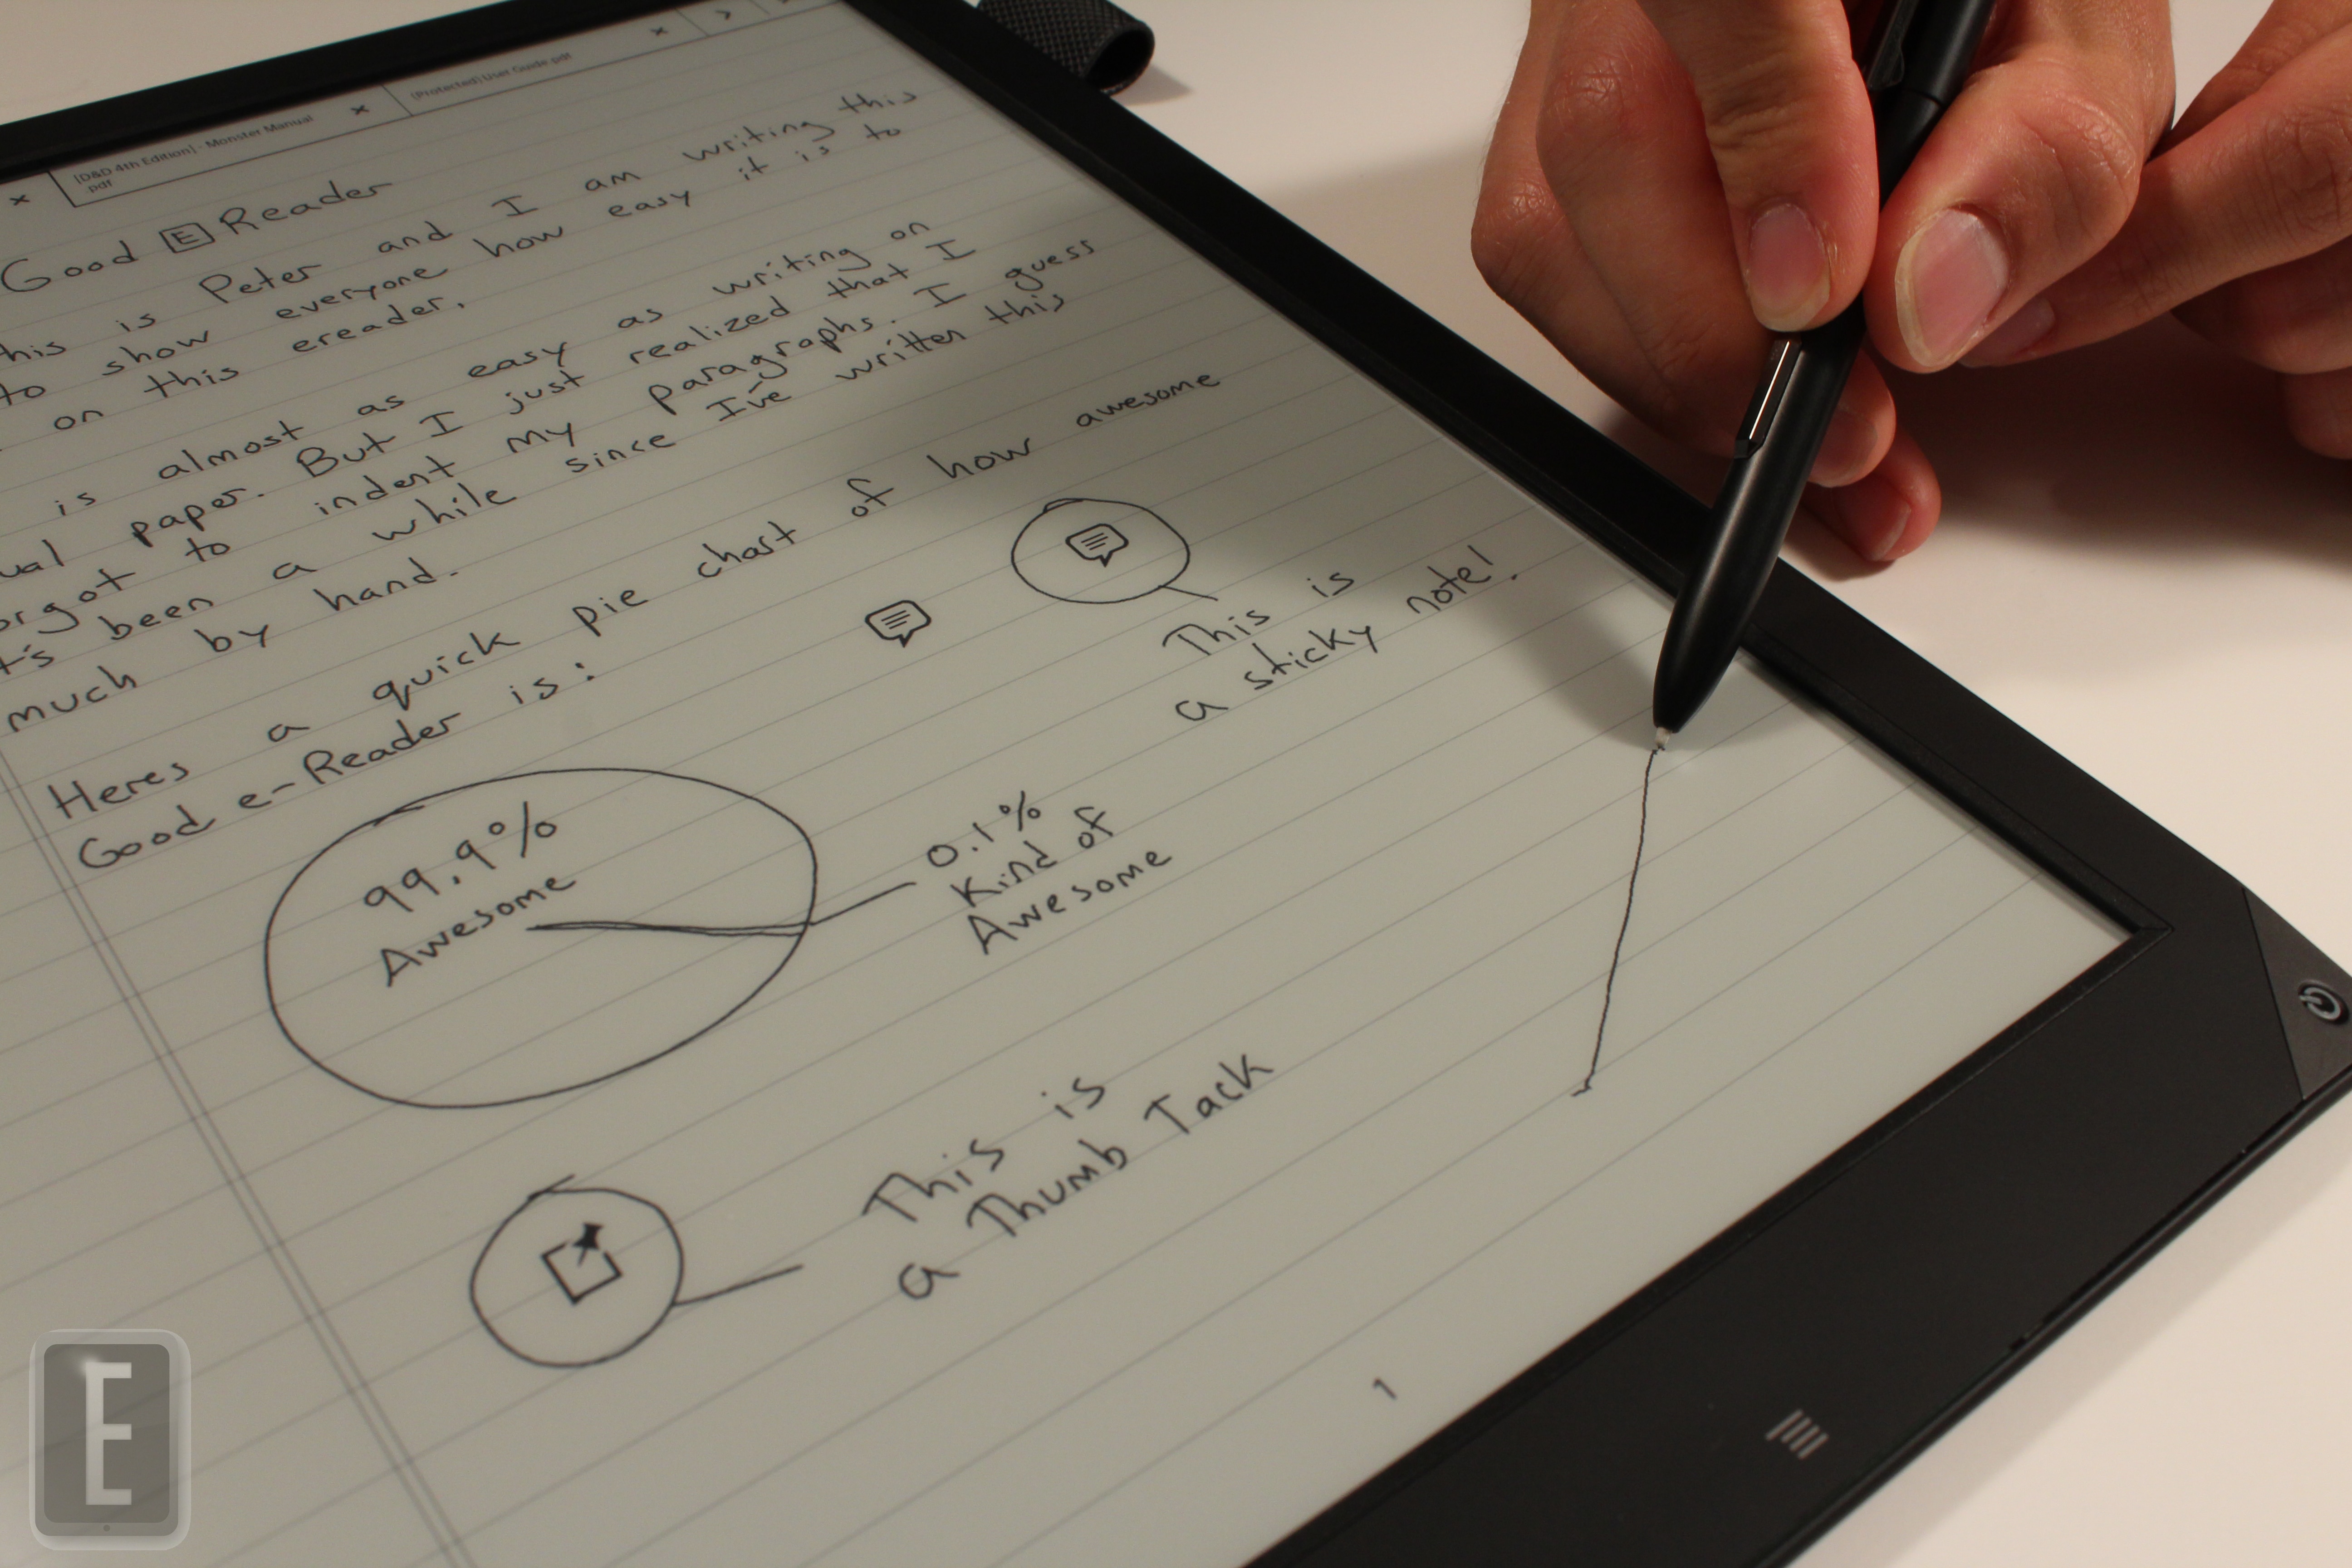 [D&D 4th Edition] - Monster Manual
.pdf
(Protected) User Guide.pdf
Good E Reader
his is Peter and I am writing this
to show everyone how easy it is to
on this ereader.
is almost as easy as writing on
ual paper. But I just realized that I
orgot to indent my paragraphs. I guess
t's been a while since I've written this
much by hand.
Heres a quick pie chart of how awesome
Good e-Reader is:
This is
a sticky note!
99.9%
Awesome
0.1%
Kind of
Awesome
This is
a Thumb Tack
1
E